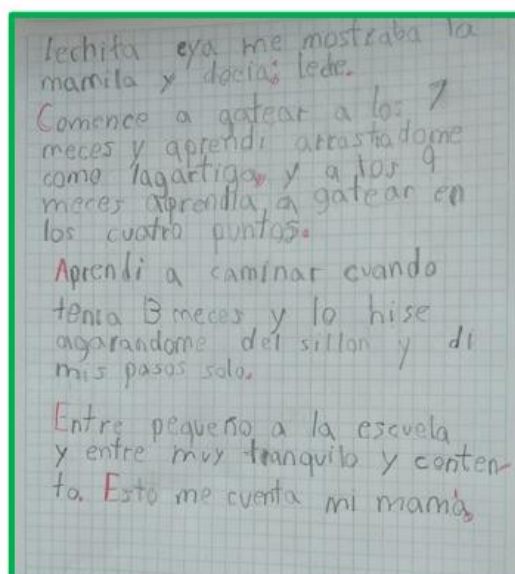 lechita eya me mostraba la
mamila y docia: leche.
Comence a gatear a los 7
meces y aprendi arrastradome
como lagartiga, y a los 9
meces aprendia a gatear en
los cuatro puntos.
Aprendi a caminar cuando
tenia 13 meces y lo hise
agarandome del sillon y di
mis pasos solo.
Entre pequeño a la escuela
y entre muy tranquilo y conten-
to. Esto me cuenta mi mamá.